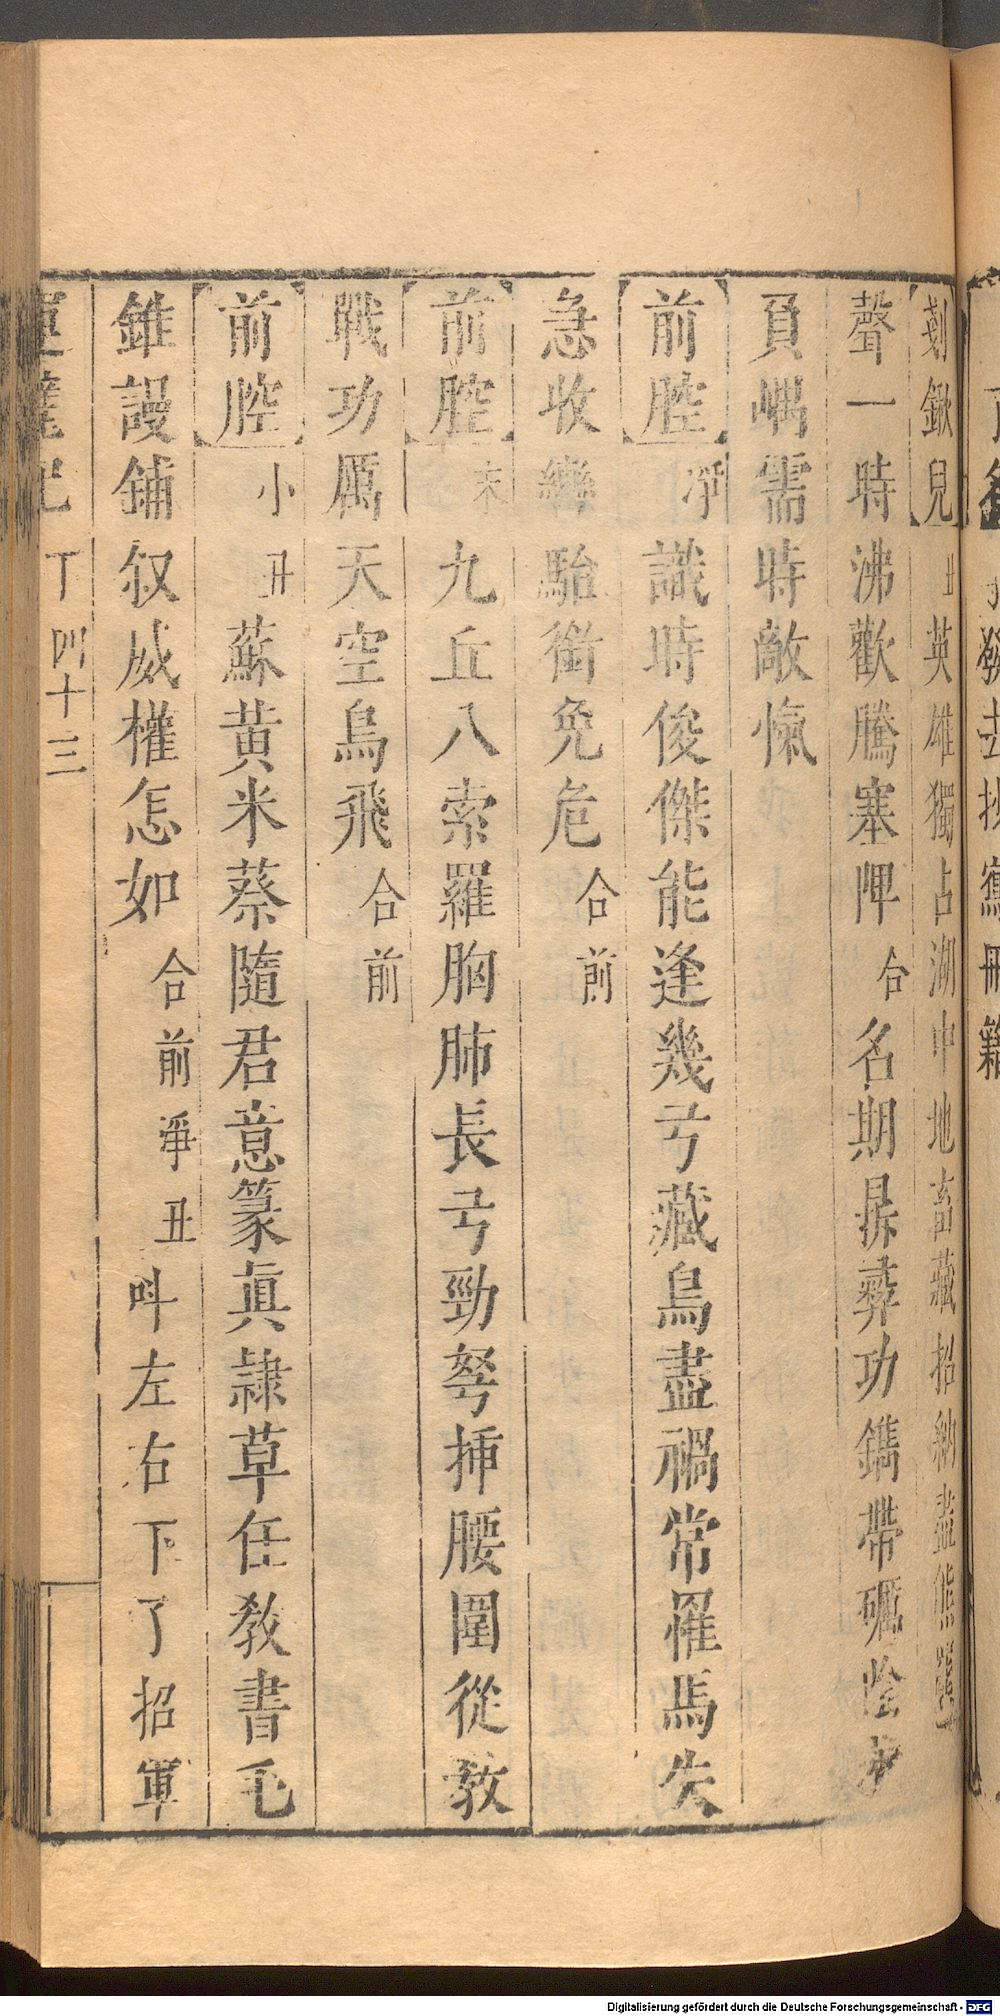 剗鍬兒丑英雄獨占湖中地畜藏招納盡熊羆
聲一時沸歡騰塞陴合名期掛彝功鐫帶礪
負嵎需時敵愾
前腔淨識時俊傑能逢幾弓藏鳥盡禍常罹馬失
急收轡駘銜免危合前
前腔末九丘八索羅胸肺長弓勁弩揷腰圍從教
戰功厲天空鳥飛合前
前腔小丑蘇黃米蔡隨君意篆眞隷草任敎書毛
錐謾鋪叙威權怎如合前淨丑呌左右下了招軍
丁四十三
Digitalisierung gefördert durch die Deutsche Forschungsgemeinschaft - DFG